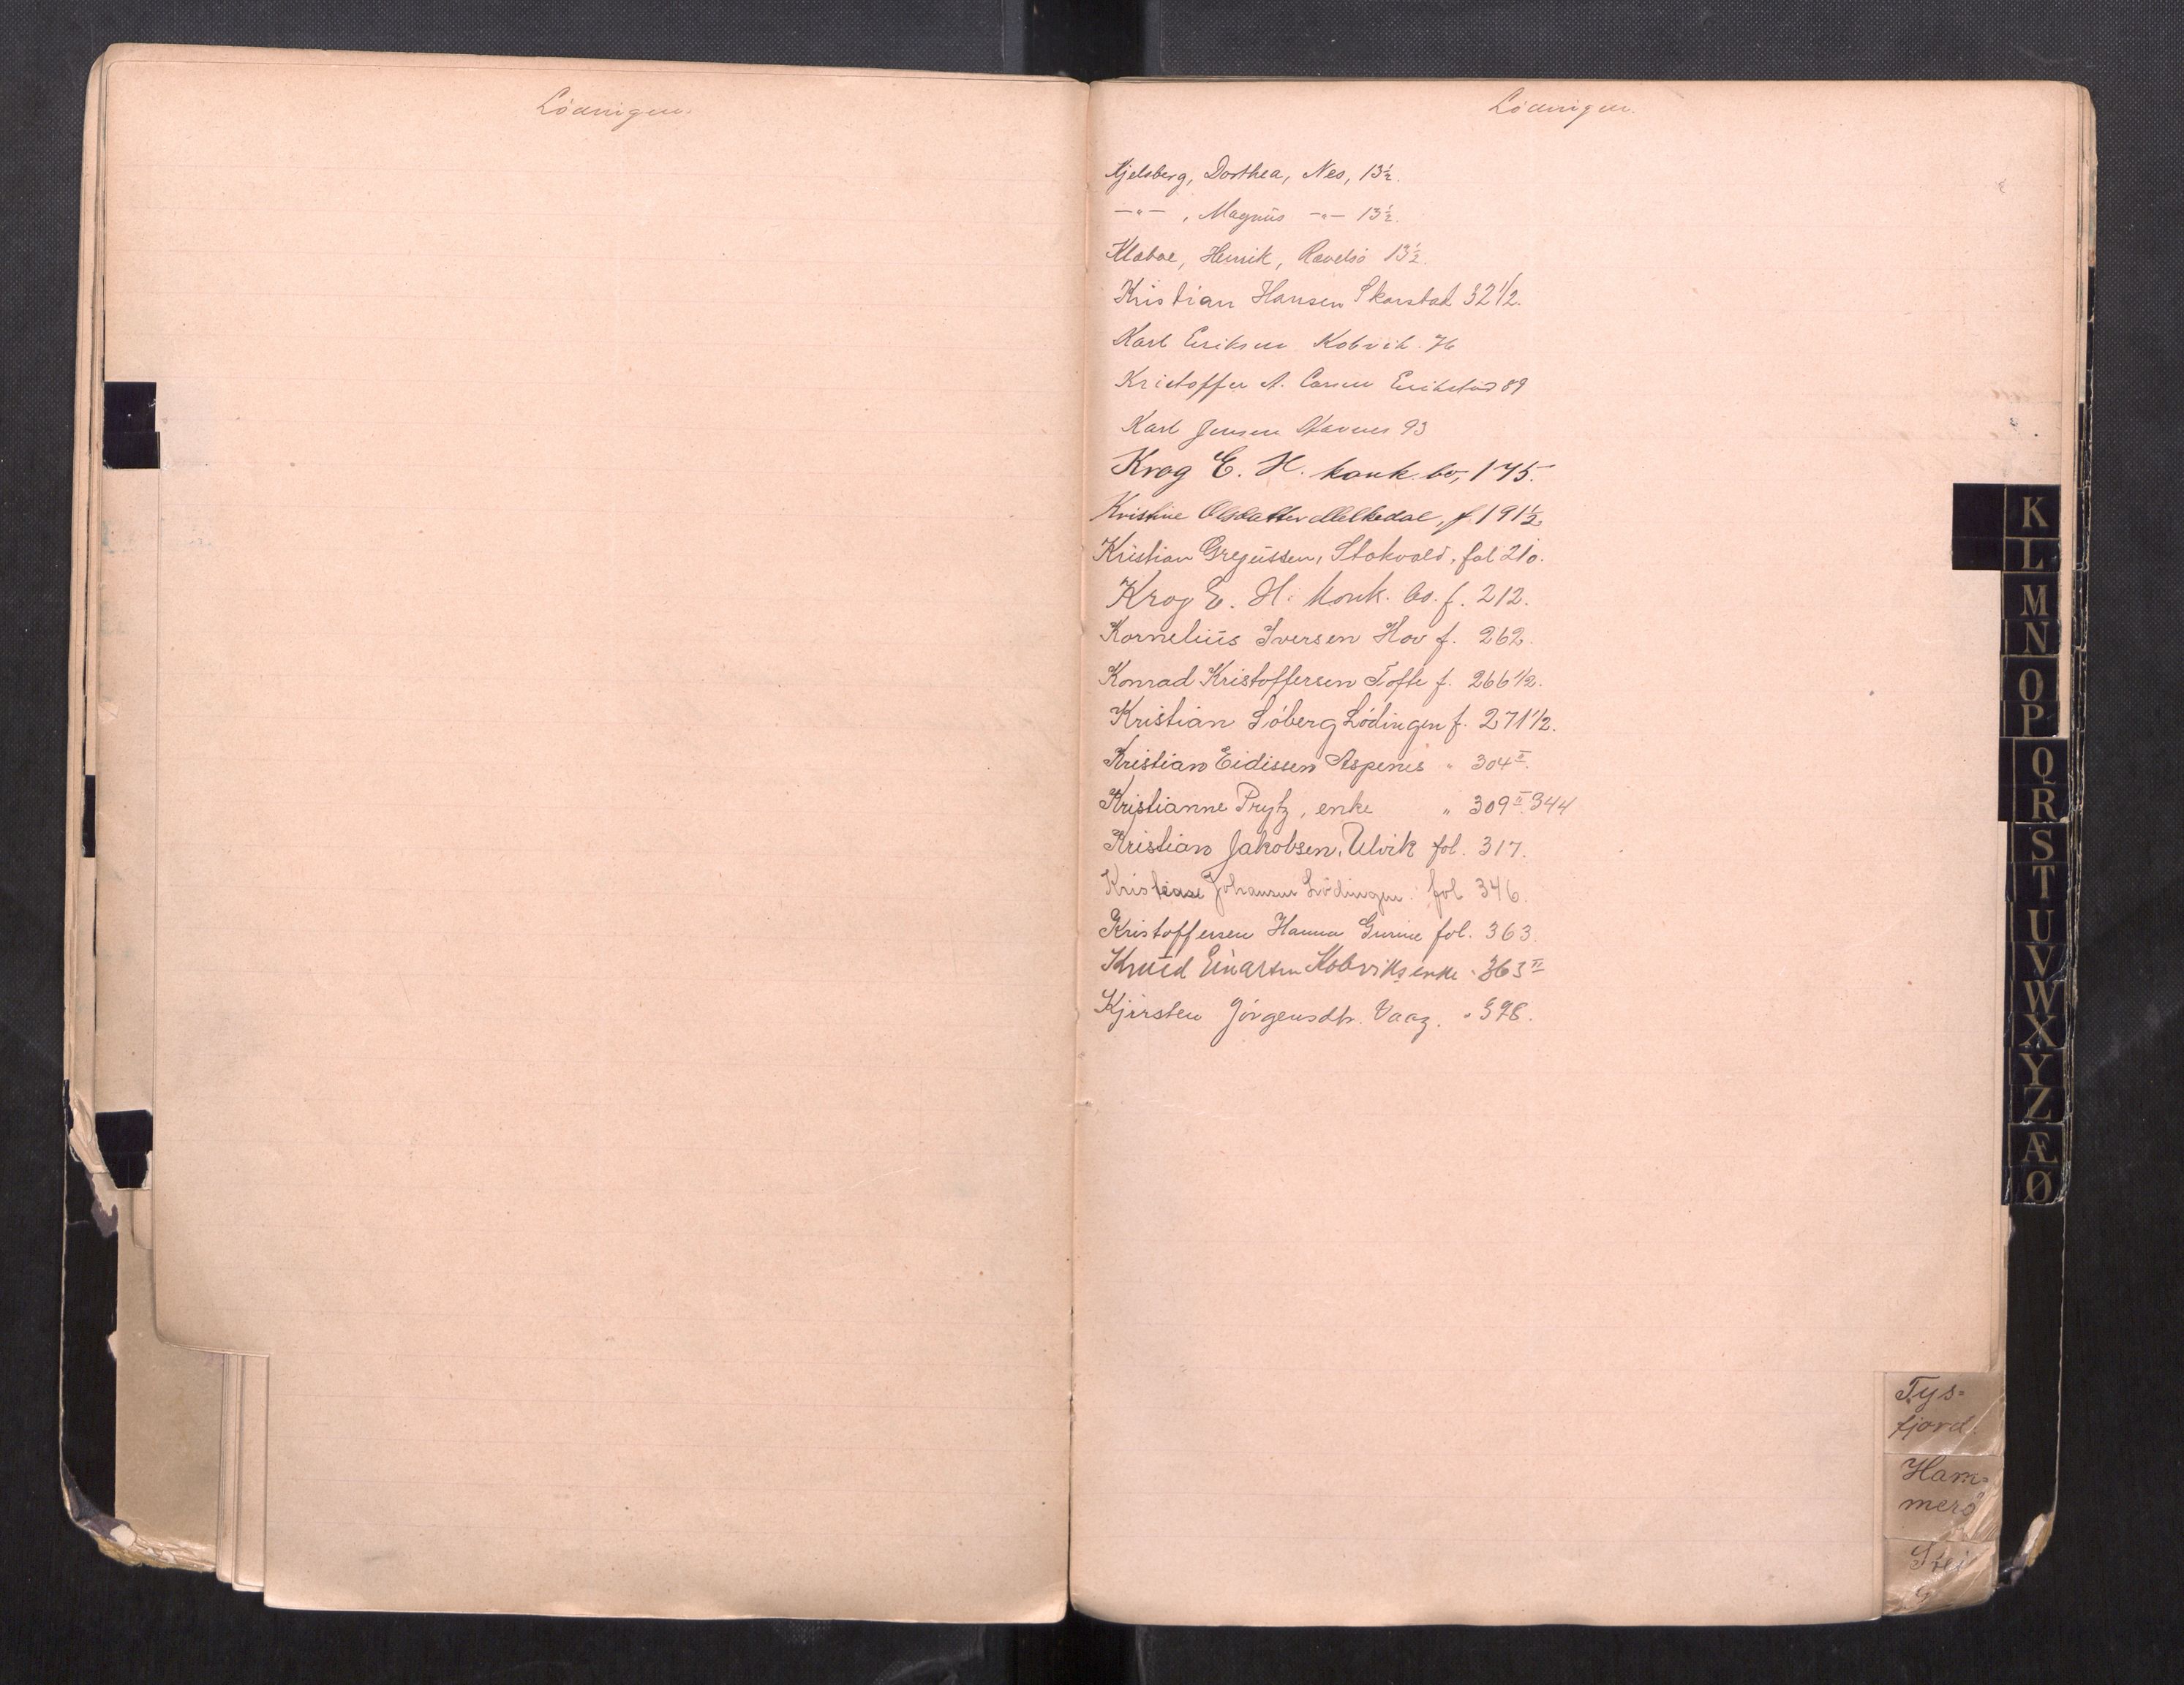 Lödingen.
Lödingen.
Kjelsberg, Dorthea, Nes, 13½.
—"— , Magnus —"— 13½.
Klæboe, Henrik, 13½.
Kristian Hansen Skarstad 32 1/2.
Karl Eriksen Kobvik. 76
Kristoffer A. Erikstad 89
Karl Jensen 93
Krog E. H. konk. bo, 175.
Kristine Olsdatter Melkedal, f. 191½
Kristian Gregussen, Stokvold, fol 210.
Krog E. H. konk. bo. f. 212.
Kornelius Iversen Hov f. 262.
Konrad Kristoffersen Tofte f. 266 1/2.
Kristian Söberg Lödingen f. 271 1/2.
Kristian Eidissen Aspenes " 304 II.
Kristianne Prytz, enke " 309 II. 344
Kristian Jakobsen, Ulvik fol. 317.
Kristiane Johansen Lödingen. fol 346.
Kristoffersen Hanna Gurine fol. 363.
Knud Einarsen Kobviks enke " 363 II
Kjersten Jörgensdtr. Vaag. " 398.
K
L
M
N
O
P
Q
R
S
T
U
V
W
X
Y
Z
Æ
Ø
Tys=
fjord.
Ham=
merö